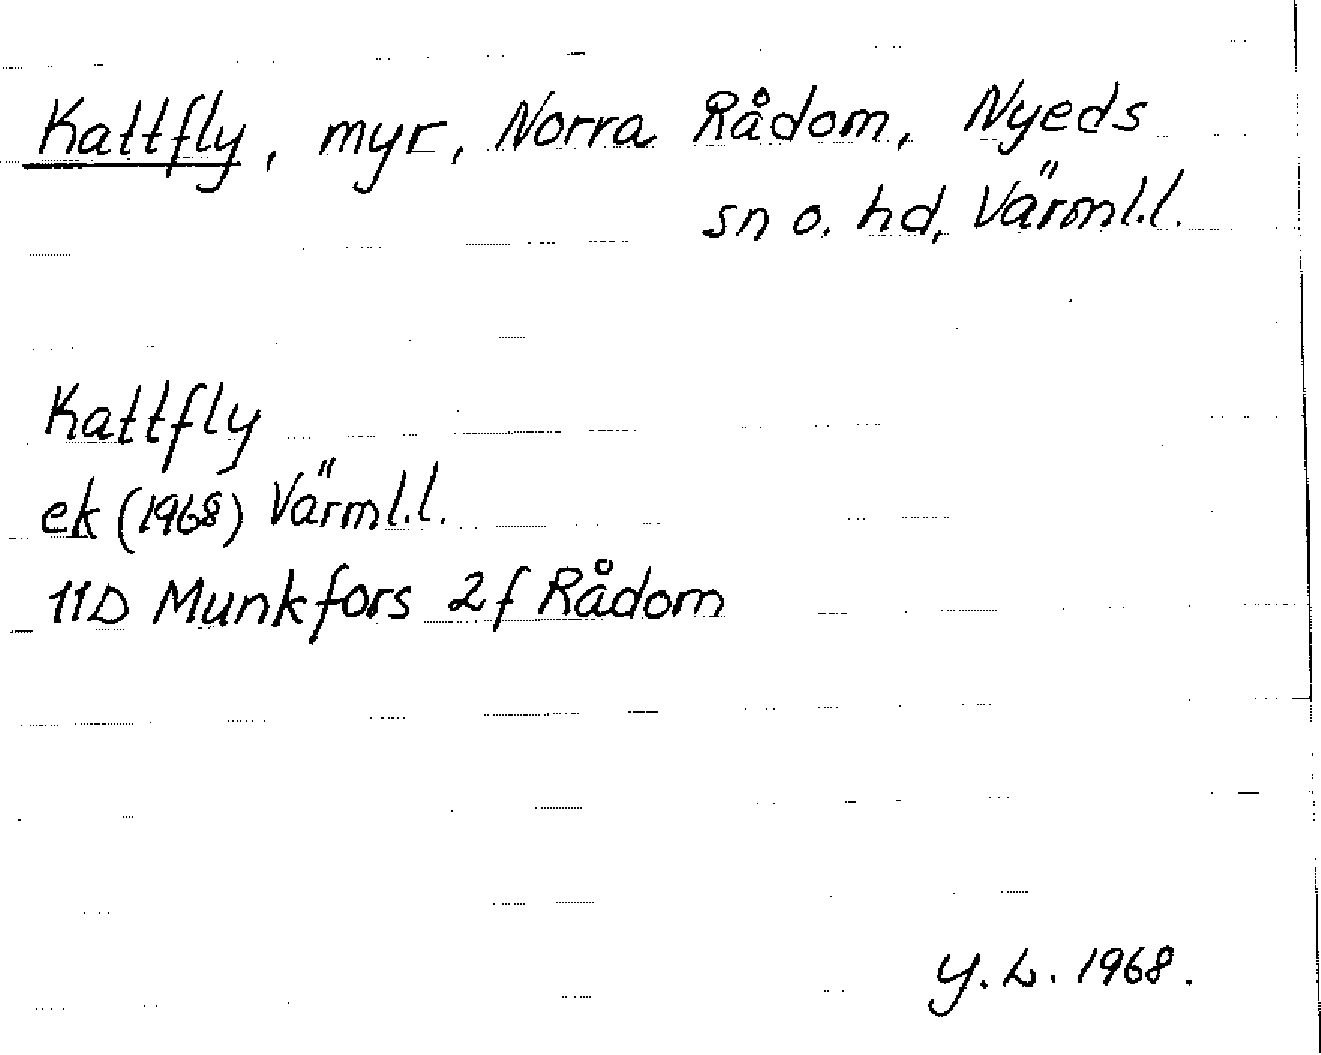 Kattfly, myr, Norra Rådom, Nyeds
sn o. hd, Värml.l.
Kattfly
ek (1968) Värml.l.
11D Munkfors 2f Rådom
Y.L. 1968.